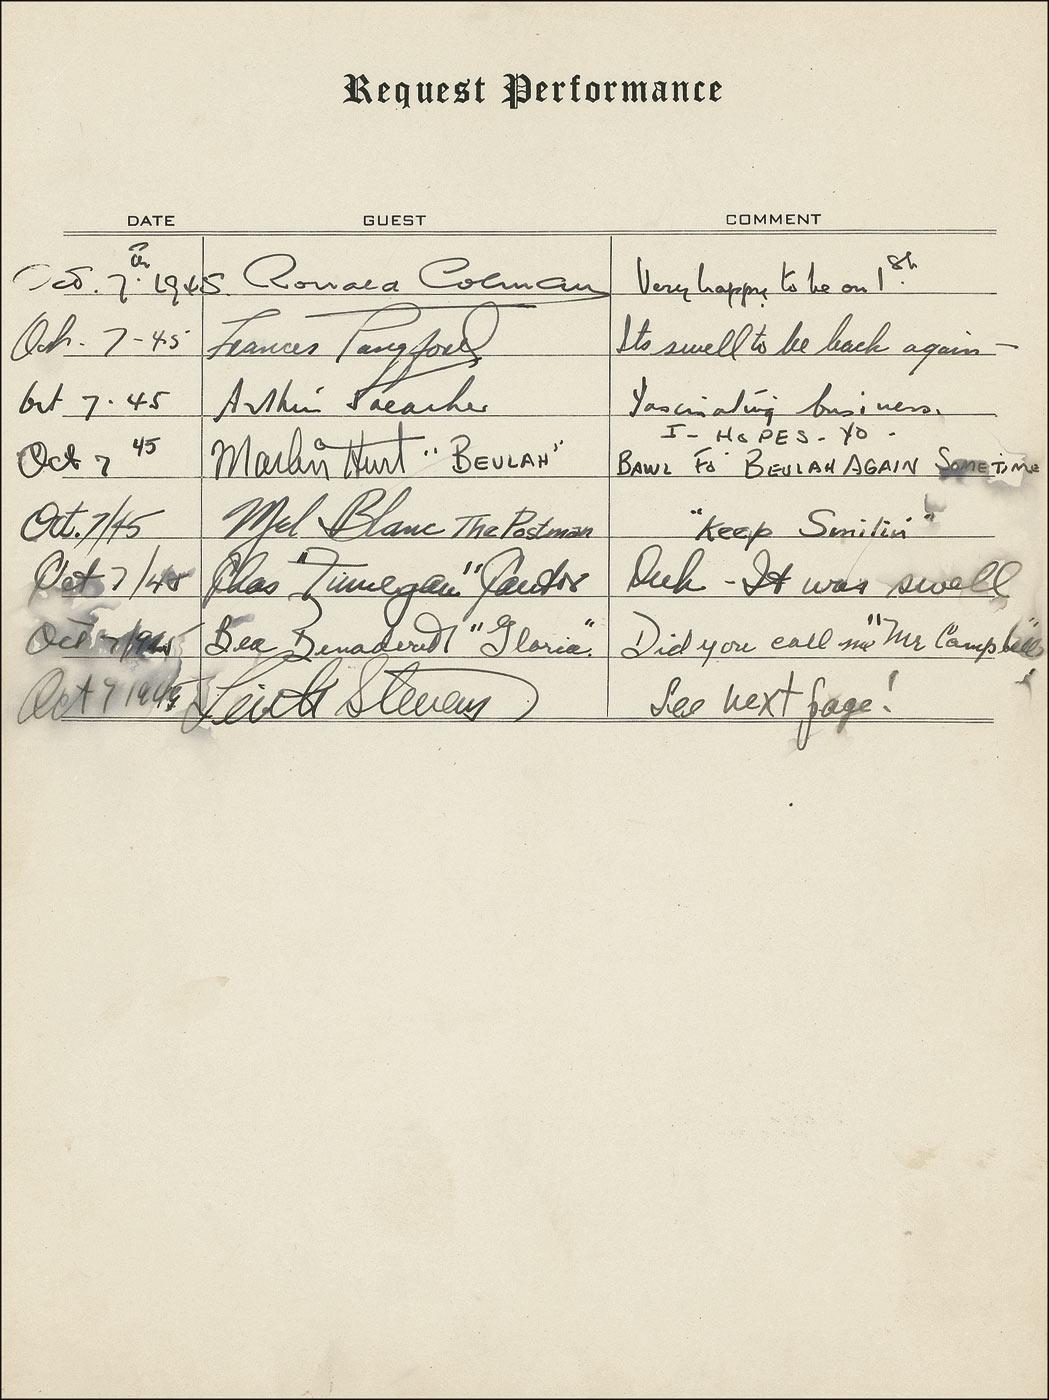 Request Performance
DATE GUEST COMMENT
Oct. 7th 1945. Ronald Colman Very happy to be on 1st.
Oct. 7-45 Frances Langford Its swell to be back again—
Oct 7.45 Arthur Treacher Fascinating business.
I-HOPES-YO-
Oct 7 45 Marlin Hurt "BEULAH" BAWL FO BEULAH AGAIN SOMETIME
Oct. 7/45 Mel Blanc The Postman "Keep Smilin"
Oct 7/45 Chas "Finnegan" Cantor Duh - It was swell
Oct 7/1945 Bea Benaderet "Gloria". Did you call me "Mr Campbell"
Oct 7 1945 Leith Stevens See next page!